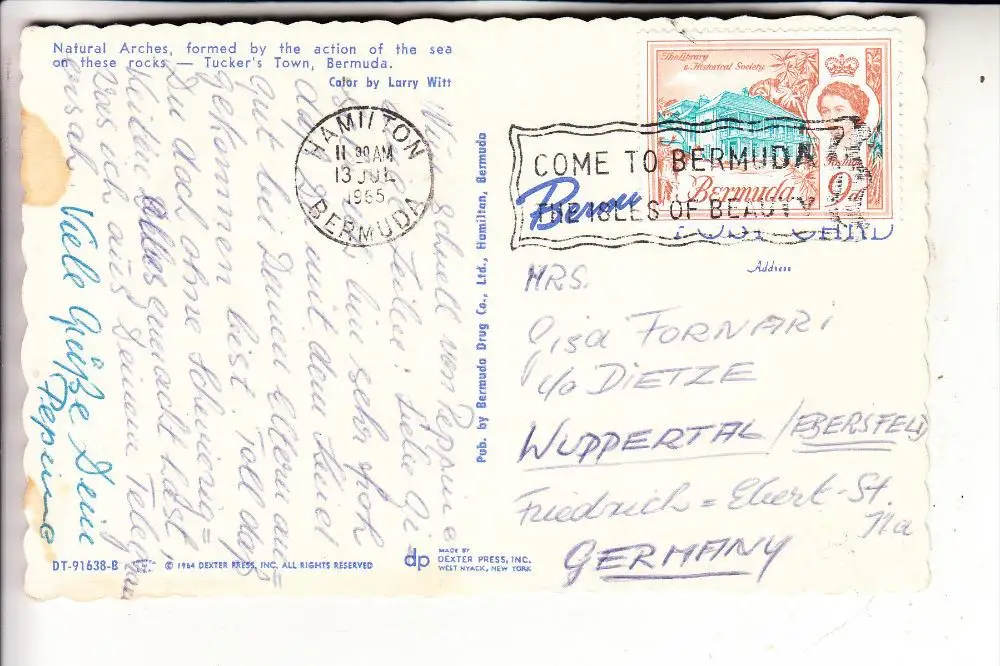 Natural Arches, formed by the action of the sea
on these rocks — Tucker's Town, Bermuda.
Color by Larry Witt
HAMILTON
11 30 AM
13 JUL
1965
BERMUDA
COME TO BERMUDA
THE ISLES OF BEAUTY
The Library
& Historical Society
Bermuda
9d
POST CARD
Address
MRS.
Gisa FORNARI
c/o DIETZE
WUPPERTAL / EBERSFELD
Friedrich = Ebert-St.
71a
GERMANY
Pub. by Bermuda Drug Co., Ltd., Hamilton, Bermuda
schnell von Peppone
Teilen: Liebe Gi=
bin sehr froh
daß mit dem Kind
gut bei Deinen Eltern an=
gekommen bist. Toll daß
Du doch ohne Schwierig=
keiten alles gemacht hast,
was ich aus Deinem Telegram
ersah.
Viele Grüße Dein
Peppone
DT-91638-B
© 1964 DEXTER PRESS, INC. ALL RIGHTS RESERVED
dp
MADE BY
DEXTER PRESS, INC.
WEST NYACK, NEW YORK